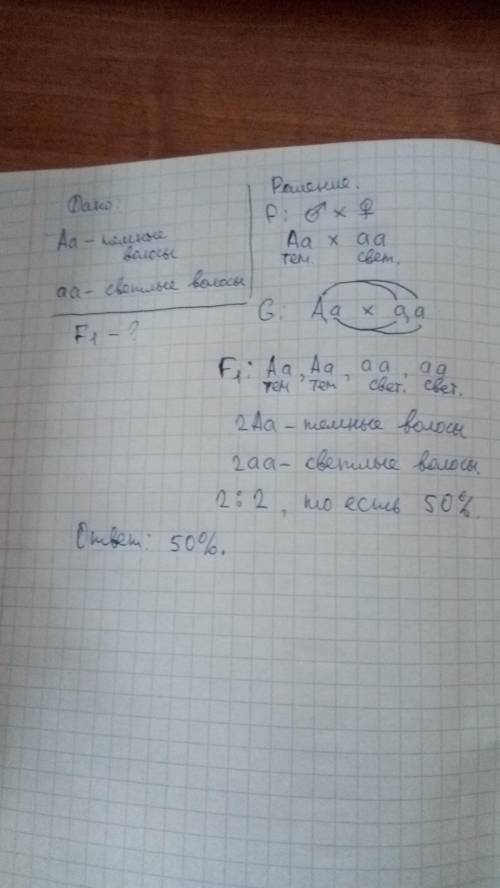 Дано:
Аа - темные
волосы
аа - светлые волосы
F₁ - ?
Решение.
P: ♂ × ♀
Аа × аа
тем. свет.
G: Аа × аа
F₁: Аа, Аа, аа, аа
тем тем свет. свет.
2Аа - темные волосы
2аа - светлые волосы.
2:2, то есть 50%.
Ответ: 50%.